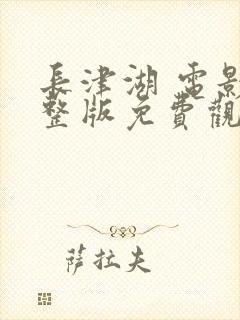 長津湖 電影
整版免費觀
萨拉夫